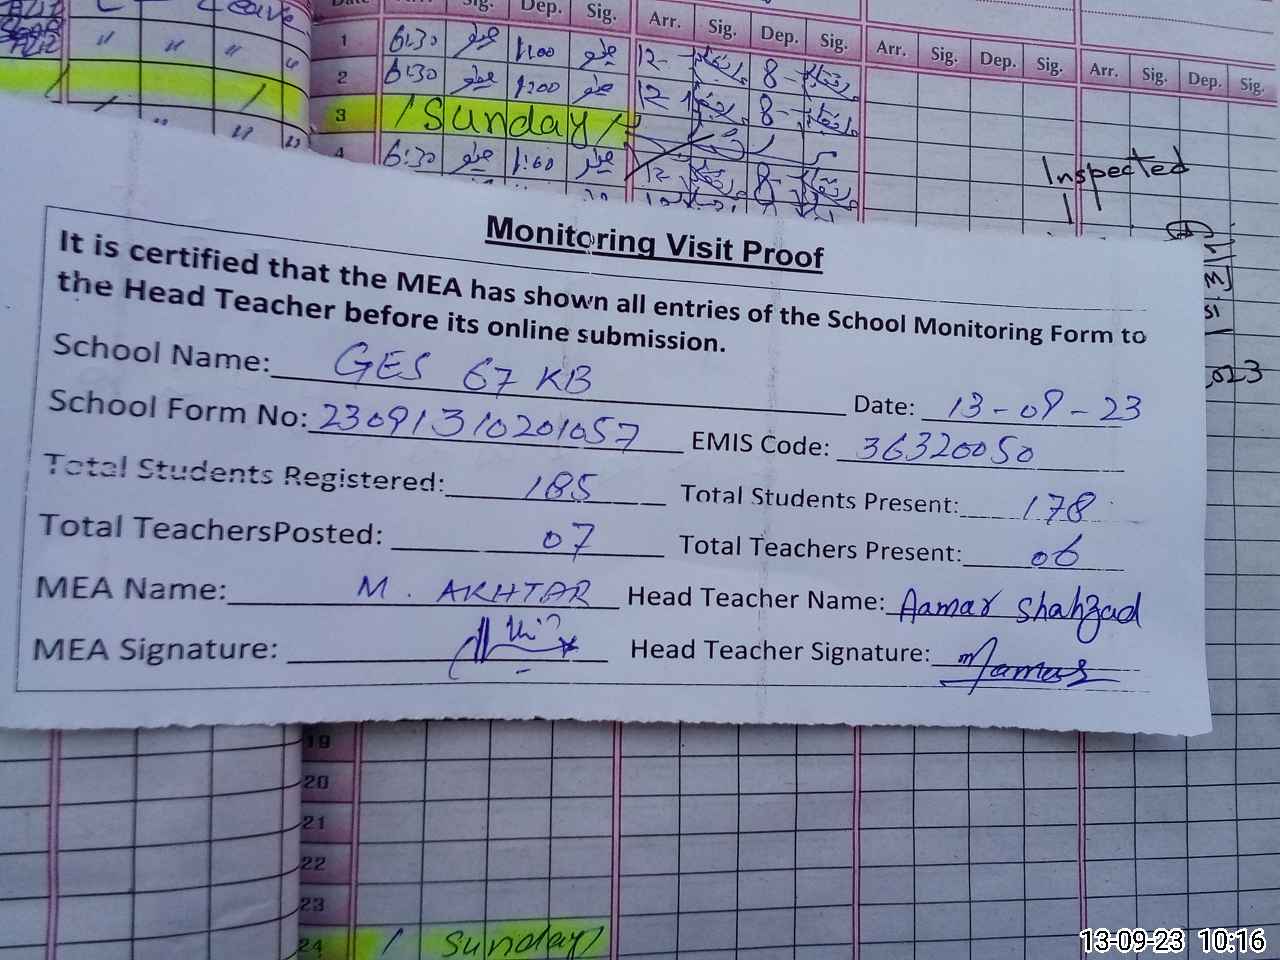 Leave
Date Arr. Sig. Dep. Sig. Arr. Sig. Dep. Sig. Arr. Sig. Dep. Sig. Arr. Sig. Dep. Sig.
1 6:30 1:00 12 8
2 6:30 1:00 12 8
3 / Sunday /
4 6:30 12 8
Inspected
Monitoring Visit Proof
It is certified that the MEA has shown all entries of the School Monitoring Form to
the Head Teacher before its online submission.
School Name: GES 67 KB Date: 13-09-23
School Form No: 23091310201057 EMIS Code: 36320050
Total Students Registered: 185 Total Students Present: 178
Total TeachersPosted: 07 Total Teachers Present: 06
MEA Name: M. AKHTAR Head Teacher Name: Aamar Shahzad
MEA Signature: Head Teacher Signature:
19
20
21
22
23
24 / Sunday /
13-09-23 10:16